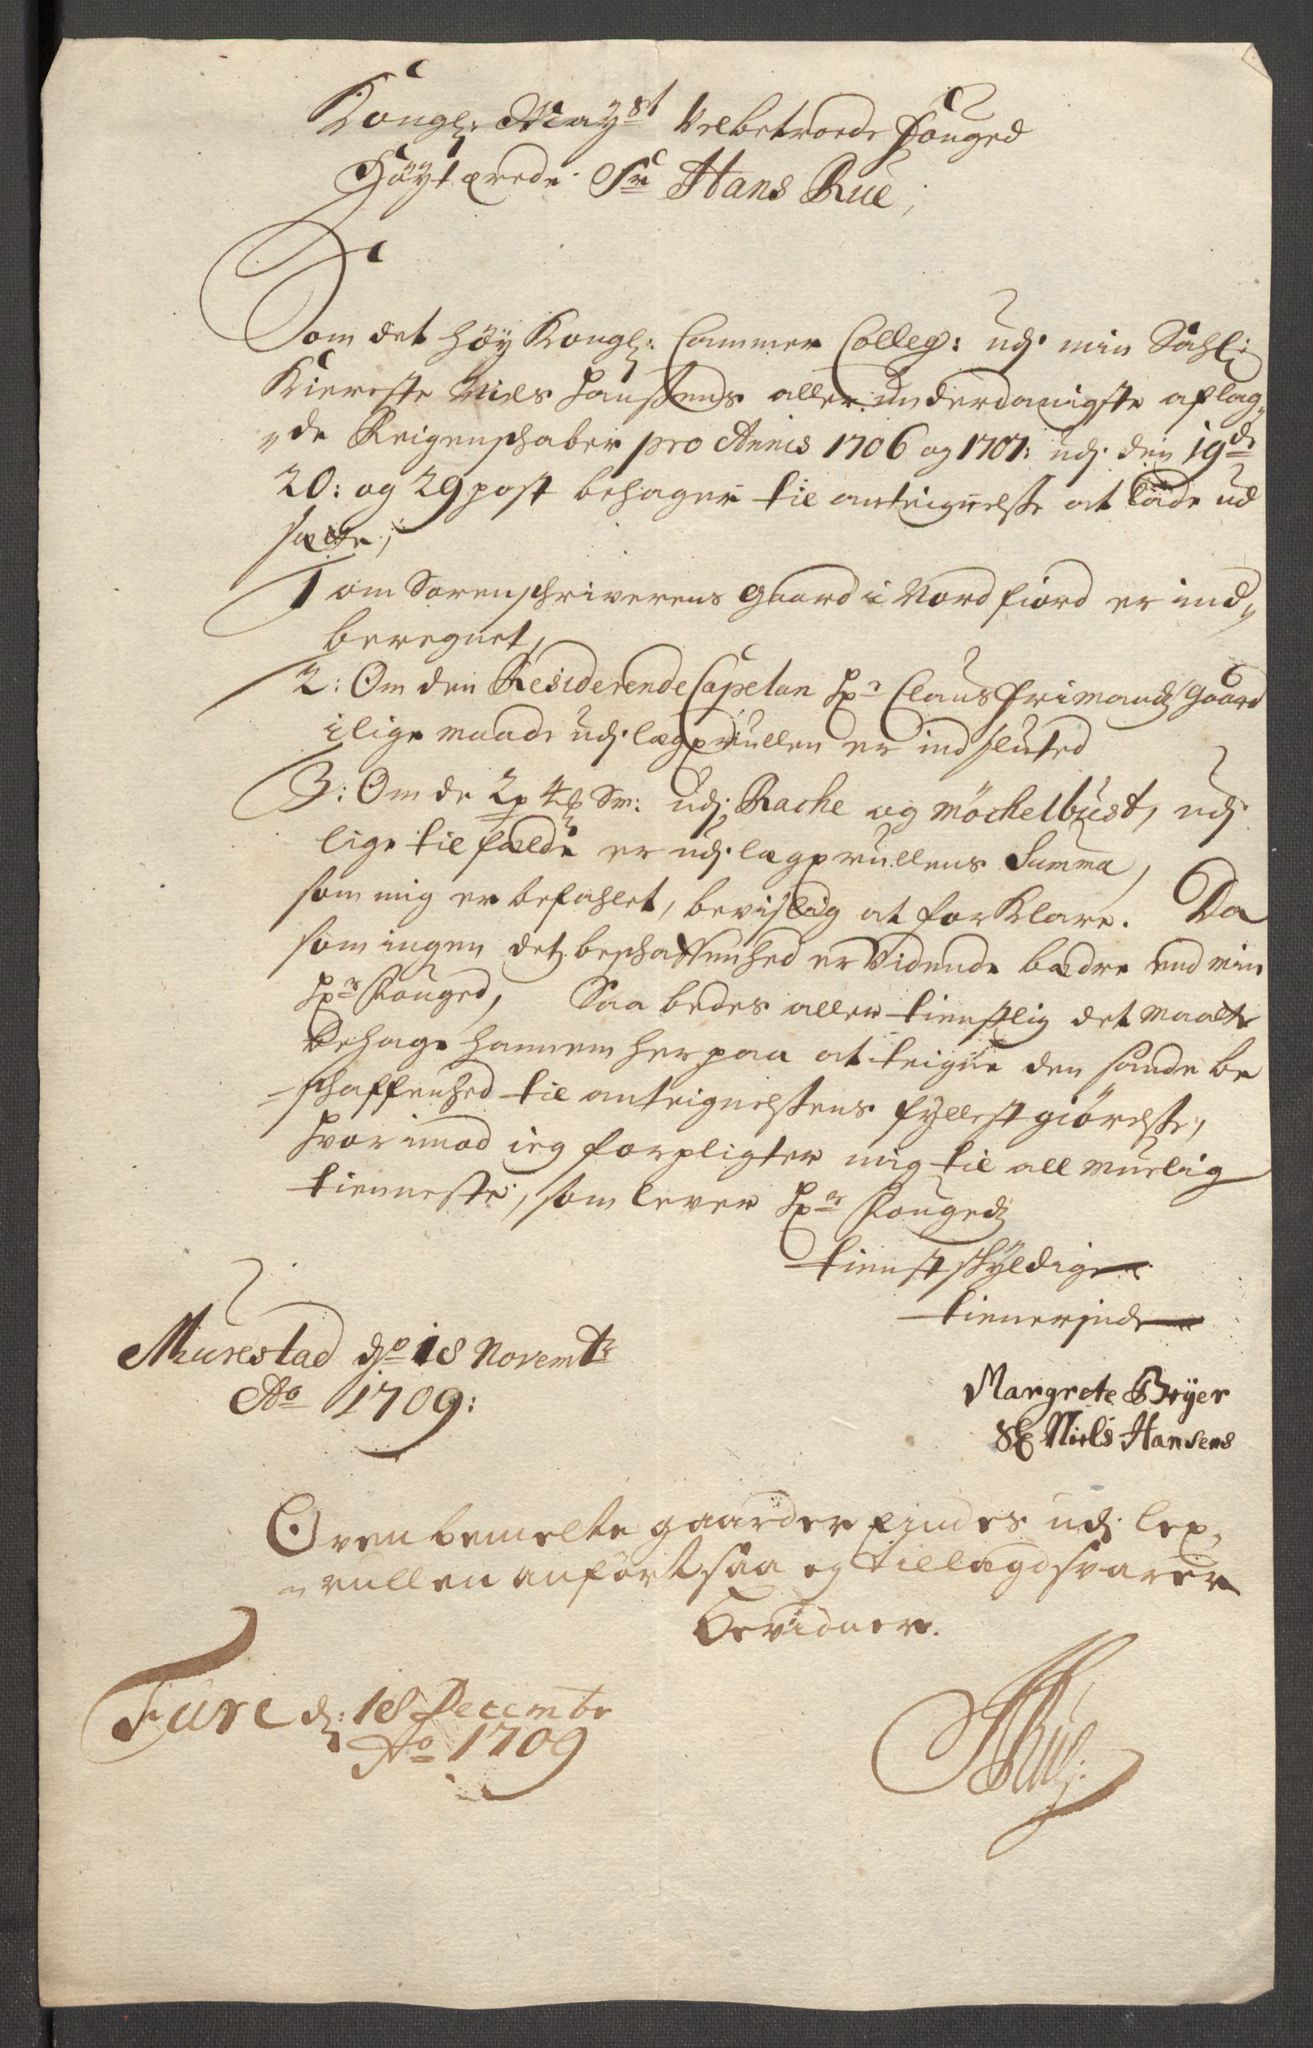 Kongl: Mayst Velbetroede Fouged
Höytærede Sr Hans Rue,
Som det höy Kongl: Cammer Colleg: udj min Sahl:
Kiereste Niels Hanssens aller underdanigste aflag„
„de Reigenschaber pro Annis 1706 og 1707: udj den 19de
20: og 29 post behager til anteignelse at lade ud
sætte,
1 om Sorenschriverens gaard i Nordfiord er ind„
beregnet,
2: Om den Residerende Capelan Hr Claus Frimands gaard
i lige maade udj lægprullen er indsluted
3: Om de 2p 4 Sm: udj Rache og Möchelbust, udj
lige tilfælde er udj lægprullens Summa,
som mig er befahlet, bevislig at forKlare. Da
som ingen dets beschaffenhed er Vidende bædre end min
Hr Fouged, Saa bedes aller tienstlig det maatte
behage hannem her paa at teigne den sande be
schaffenhed til anteignelsens fyllestgiörelse,
hvorimod ieg forpligter mig til all muelig
tienneste, som lever Hr Fougeds
tienstskyldige
tienerinde
Murestad dn 18 Novembr
Ao 1709:
Margrete Bryer
Sl Niels Hansens
Ovenbemelte gaarder findes udj lep„
„rullen anfört saa og tillagdsvarer
bevidner.
Fure d: 18 Decembr
Ao 1709
HRue